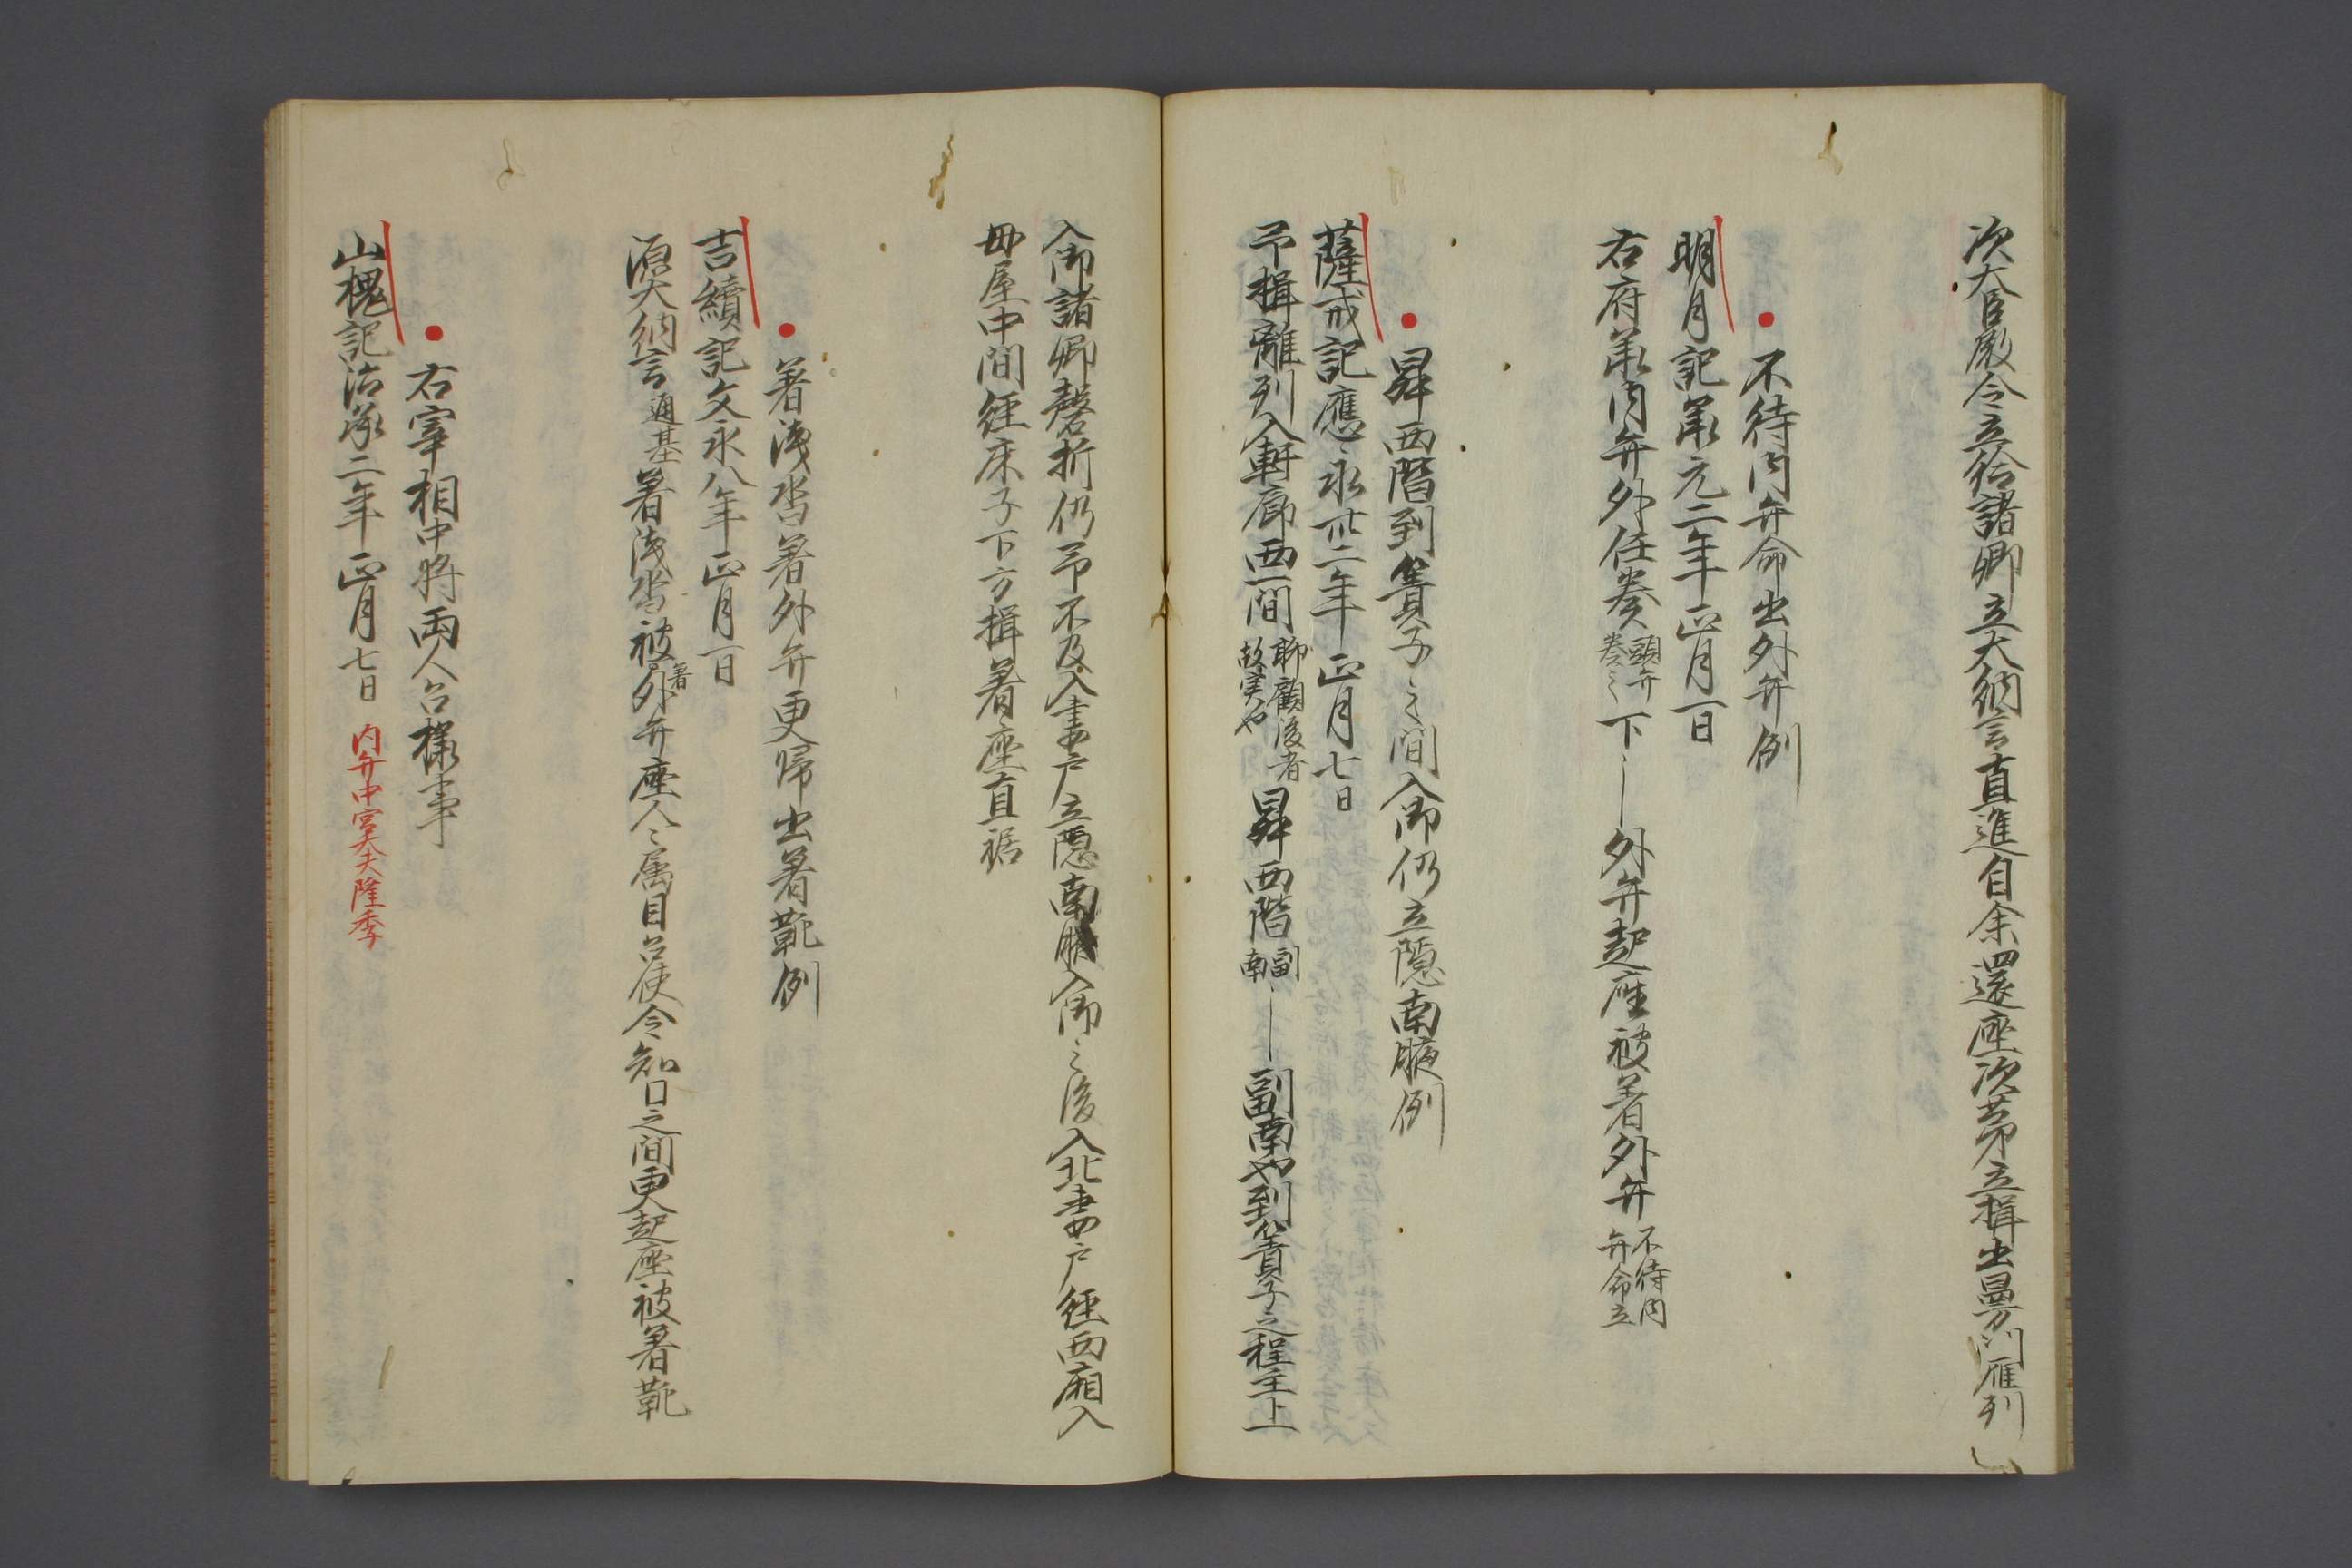 次大臣殿令立給諸卿立大納言直進自余還座次第立揖出曻方列雁列
不待内弁命出外弁例
明月記承元二年正月一日
右府承内弁外任奏頭弁奏之下〡外弁起座被着外弁不待内弁命立
昇西階到簀子之間入御仍立隠南腋例
薩戒記應永卅二年正月七日
予揖離列入軒廊西一間聊顧後者故実也昇西階副南〡副南也到簀子之程主上
入御諸卿磬折仍予不及入妻戸立隠南腋入御之後入北妻戸経西廂入
母屋中間経床子下方揖着座直裾
着浅沓著外弁更帰出著靴例
吉續記文永八年正月一日
源大納言通基著浅沓被著外弁座人々属目召使令知口之間更起座被著靴
右宰相中将両人召様事
山槐記治承二年正月七日 内弁中宮大夫隆季